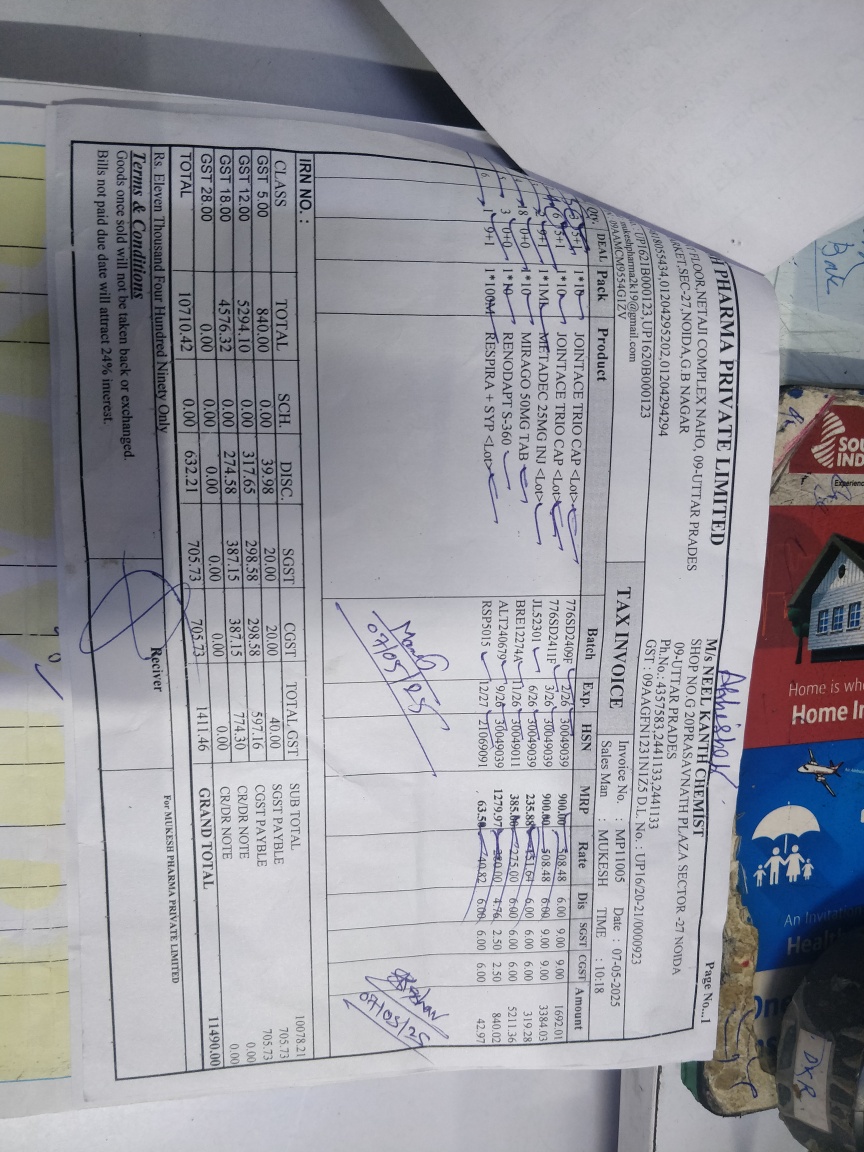 PHARMA PRIVATE LIMITED
FLOOR,NETAJI COMPLEX NAHO, 09-UTTAR PRADES
RKET,SEC-27,NOIDA,G.B NAGAR
8055434,01204295202,01204294294
UP1621B000123,UP1620B000123
mukeshpharma2k19@gmail.com
09AAMCM9554G1ZV
Abhishek
Page No...1
M/s NEEL KANTH CHEMIST
SHOP NO.G 20PRASAVNATH PLAZA SECTOR -27 NOIDA
09-UTTAR PRADES
Ph.No.: 4357583,2441133,2441133
GST : 09AAGFN1231N1Z5 D.L. No. : UP16/20-21/0000923
TAX INVOICE
Invoice No. : MP11005 Date : 07-05-2025
Sales Man : MUKESH TIME : 10:18
Qty. DEAL Pack Product Batch Exp. HSN MRP Rate Dis SGST CGST Amount
5+1 1*10 JOINTACE TRIO CAP <Lot> 776SD2409F 2/26 30049039 900.00 508.48 6.00 9.00 9.00 1692.01
5+1 1*10 JOINTACE TRIO CAP <Lot> 776SD2411F 3/26 30049039 900.00 508.48 6.00 9.00 9.00 3384.03
2 9+1 METADEC 25MG INJ <Lot> JL52301 6/26 30049039 235.88 6.00 6.00 6.00 319.28
18 0+0 1*10 MIRAGO 50MG TAB BRE12274A 11/26 30049011 385.00 275.00 6.00 6.00 6.00 5211.36
3 0+0 1*10 RENODAPT S-360 ALT240679 9/26 30049039 1279.97 280.00 4.76 2.50 2.50 840.02
1 9+1 1*100M RESPIRA + SYP <Lot> RSP5015 12/27 21069091 63.50 40.82 6.00 6.00 6.00 42.97
07/05/25
07/05/25
IRN NO. :
CLASS TOTAL SCH. DISC. SGST CGST TOTAL GST
GST 5.00 840.00 0.00 39.98 20.00 20.00 40.00
GST 12.00 5294.10 0.00 317.65 298.58 298.58 597.16
GST 18.00 4576.32 0.00 274.58 387.15 387.15 774.30
GST 28.00 0.00 0.00 0.00 0.00 0.00 0.00
TOTAL 10710.42 0.00 632.21 705.73 705.73 1411.46
SUB TOTAL 10078.21
SGST PAYBLE 705.73
CGST PAYBLE 705.73
CR/DR NOTE 0.00
CR/DR NOTE 0.00
GRAND TOTAL 11490.00
Rs. Eleven Thousand Four Hundred Ninety Only
Terms & Conditions
Goods once sold will not be taken back or exchanged.
Bills not paid due date will attract 24% interest.
Reciver
For MUKESH PHARMA PRIVATE LIMITED
SOU
IND
Experienc
Home is whe
Home In
An Invitatio
Health
DKR